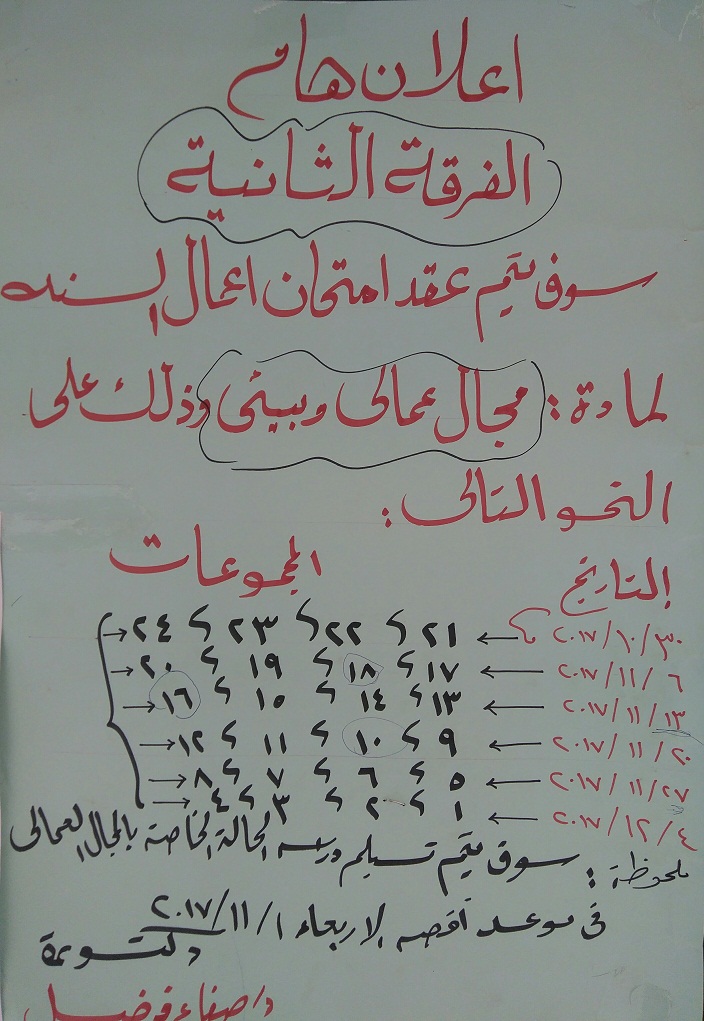 اعلان هام
الفرقة الثانية
سوف يتم عقد امتحان اعمال السنه
لمادة : مجال عمالى وبيئى وذلك على
النحو التالى :
التاريخ المجموعات
٢٠١٧/١٠/٣٠ ← ٢١ ، ٢٢ ، ٢٣ ، ٢٤ ←
٢٠١٧/١١/٦ ← ١٧ ، ١٨ ، ١٩ ، ٢٠ ←
٢٠١٧/١١/١٣ ← ١٣ ، ١٤ ، ١٥ ، ١٦ ←
٢٠١٧/١١/٢٠ ← ٩ ، ١٠ ، ١١ ، ١٢ ←
٢٠١٧/١١/٢٧ ← ٥ ، ٦ ، ٧ ، ٨ ←
٢٠١٧/١٢/٤ ← ١ ، ٢ ، ٣ ، ٤ ←
ملحوظة : سوف يتم تسليم دراسه الحالة الخاصة بالمجال العمالى
فى موعد أقصه الاربعاء ٢٠١٧/١١/١
دكتورة
د/صفاء فوضيل